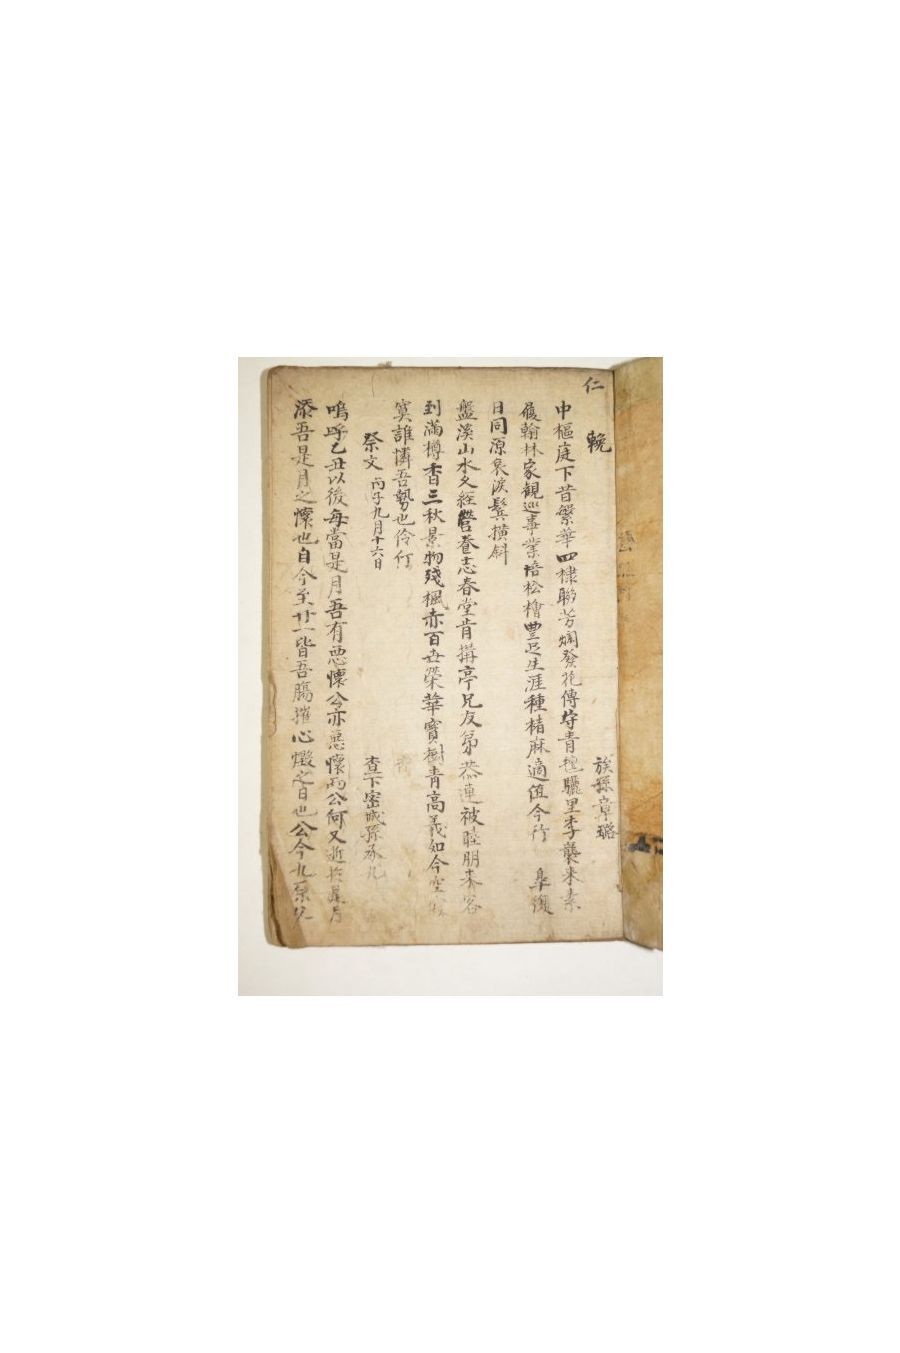 仁
輓 族孫章璐
中樞庭下昔繁華四棣聯芳爛發花傳守青氊驪里李襲來素
履翰林家觀巡事業培松檜豐足生涯種楮麻適値今行 皐復
日同源衰淚鬂橫斜
盤溪山水久經營眷志春堂肯搆亭兄友弟恭連被睦朋來客
到滿樽香三秋景物殘楓赤百世榮華寶樹青高義如今空寂
寞誰憐吾勢也伶仃
祭文 丙子九月十六日 査下密城孫承九
嗚呼乙丑以後每當是月吾有悪懷公亦悪懷而公何又逝於是月
添吾是月之懷也自今至廿一皆吾膓摧心燬之日也公今九原